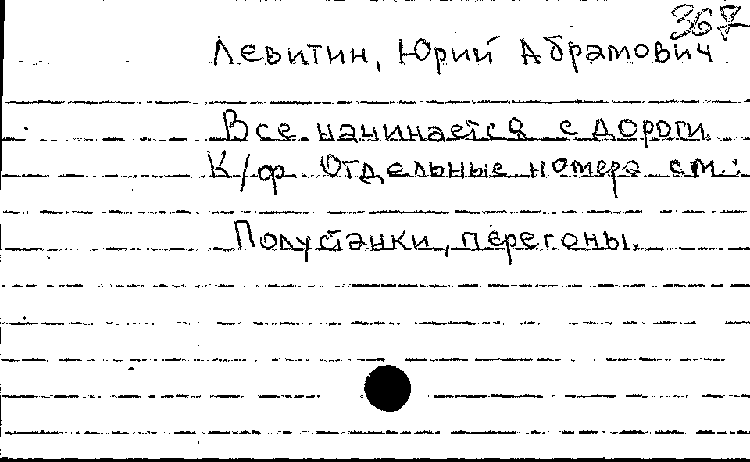 367
Левитин, Юрий Абрамович
Все начинается с дороги
К/ф. Отдельные номера см.:
Полустанки, перегоны.